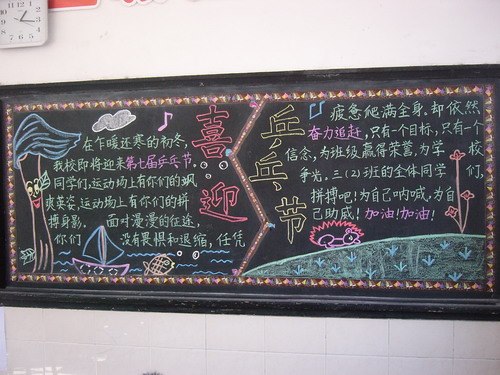 喜迎
乒乓节
在乍暖还寒的初冬,
我校即将迎来第七届乒乓节。
同学们,运动场上有你们的飒
爽英姿,运动场上有你们的拼
搏身影, 面对漫漫的征途,
你们 没有畏惧和退缩,任凭
疲惫爬满全身,却依然
奋力追赶,只有一个目标,只有一个
信念,为班级赢得荣誉,为学校
争光。三(2)班的全体同学们,
拼搏吧!为自己呐喊,为自
己助威!加油!加油!